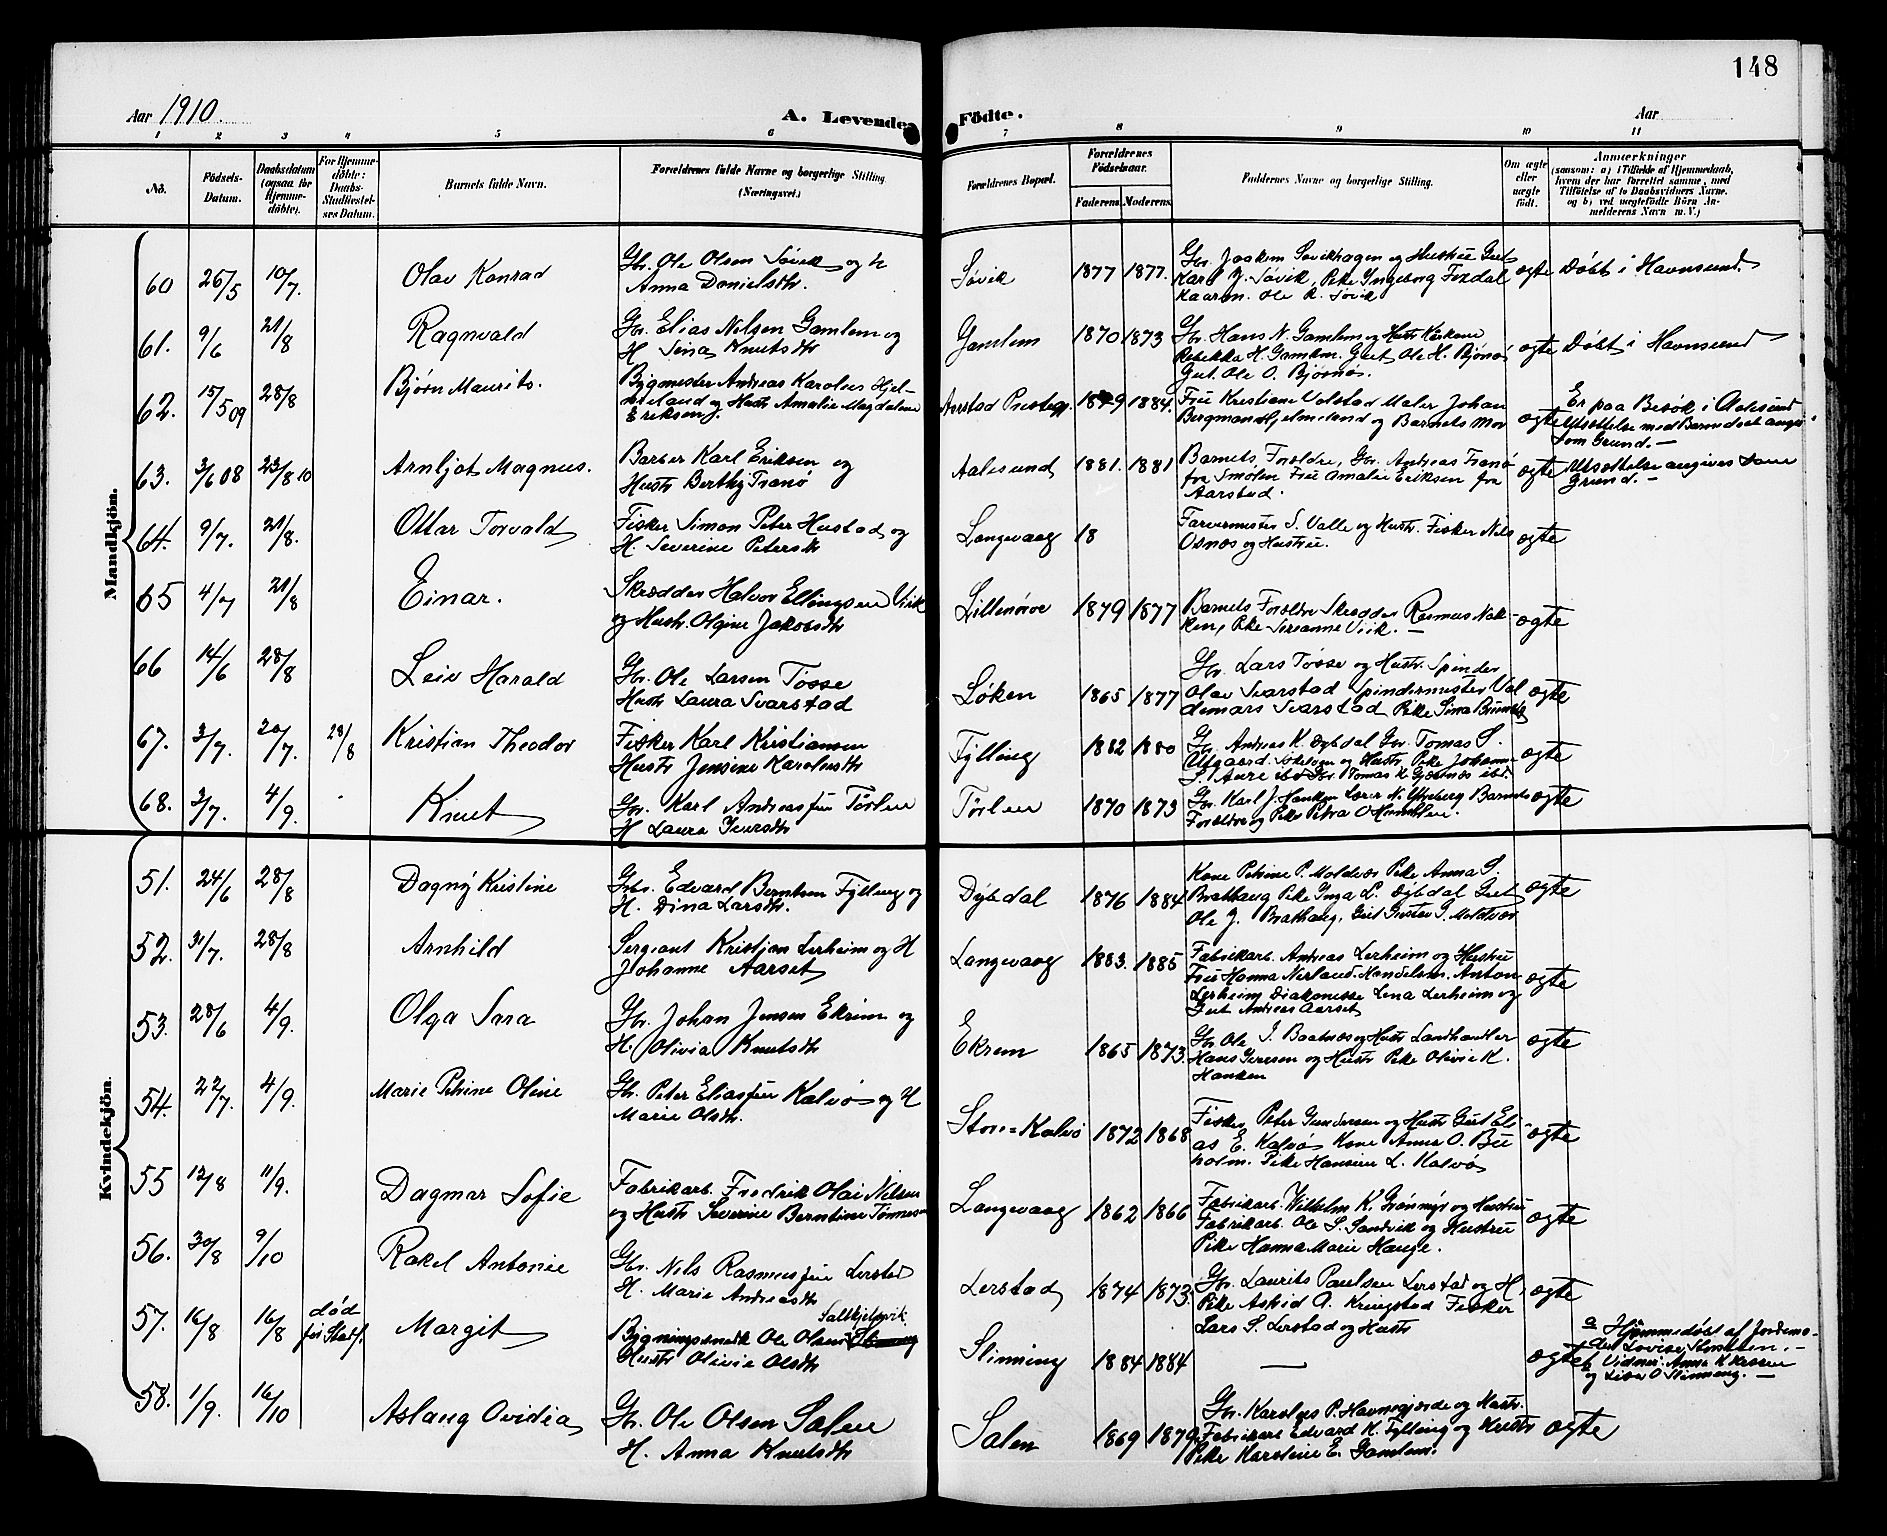 148
Aar 1910.
A. Levende Födte.
Aar
1 2 3 4 5 6 7 8 9 10 11
No.
Födsels-
Datum.
Daabsdatum
(ogsaa for
Hjemme-
döbte).
For Hjemme-
döbte:
Daabs-
Stadfæstel-
ses Datum.
Barnets fulde Navn.
Forældrenes fulde Navne og borgerlige Stilling
(Næringsvei.)
Forældrenes Bopæl.
Forældrenes
Födselsaar.
Faderens
Moderens
Faddernes Navne og borgerlige Stilling.
Om ægte
eller
uægte
født.
Anmærkninger
(saasom: a) i Tilfælde af Hjemmedaab,
hvem der har forrettet samme, med
Tilføielse af to Daabsvidners Navne,
og b) ved uægtefödte Börn An-
melderens Navn m. V.)
Mandkjön.
60 26/5 10/7. Olav Konrad
Gbr. Ole Olsen Søvik og H
Anna Danielsdtr.
Søvik 1877 1877.
Gbr. Joakim Søvikhagen og Hustru Gut
Karl J. Søvik, Pike Ingeborg
Kaaren. Ole R. Søvik
ægte Døbt i Havnsund.
61. 9/6 21/8 Ragnvald
Gbr. Elias Nilsen Gamlem og
H Sina Knutsdtr
Gamlem 1870 1873
Gbr. Hans N. Gamlem og Hustr
Rebekka H. Gamlem. Gut Ole H. Bjørnø
Gut. Ole O. Bjørnø.
ægte Døbt i Havnsund
62. 15/5 09 28/8 Bjørn Maurits.
Bygmester Andreas Karolius Hjel-
meland og Hustr Amalie Magdalene
Eriksen.
Aarstad Prestegj. 1879 1884.
Fru Kristiane Volstad Maler Johan
Bergman Hjelmeland og Barnets Mor
ægte Er paa Besøk i Aalesund
Utsættelse med Barnedaab angis
som Grund. —
63. 3/6 08 23/8 10 Arnljot Magnus.
Barber Karl Eriksen og
Hustr Berthy Tranø
Aalesund 1881. 1881
Barnets Forældre, Gbr. Andreas Tranø
fra Smølen Fru Amalie Eriksen fra
Aarstad.
ægte Utsættelse angives som
Grund. —
64. 9/7. 21/8. Ottar Torvald
Fisker Simon Peter Hustad og
H. Severine Petersdtr
Langevaag 18
Farvermester S. Valle og Hustr. Fisker Nils
Osnes og Hustru.
ægte
65 4/7 21/8 Einar.
Skrædder Halvor Ellingsen Vik
og Hustr. Olgine Jakobsdtr
Lillenørve 1879 1877
Barnets Forældre Skrædder Rasmus Nak-
ken, Pike Serianne Viik. —
ægte
66 14/6 28/8 Leiv Harald
Gbr. Ole Larsen Tosse
Hustr Laura Svarstad
Løken 1865 1877
Gbr. Lars Tosse og Hustr. Spinder
Olav Svarstad Spindermester Val
demars Svarstad Pike Sina
ægte
67. 3/7. 20/7. 28/8 Kristian Theodor
Fisker Karl Kristiansen
Hustr Jensine Karolusdtr
Fylling 1882 1880
Gbr. Andreas K. Dybdal Gbr. Tomas S.
Utgaard. og Hustr. Pike Johanne
S. Aure Gbr. Tomas K
ægte
68. 3/7. 4/9. Knut
Gbr. Karl Andreassen Tørlen
H Laura Iversdtr
Tørlen 1870 1873
Gbr. Karl J. Hanken Lærer N. Ytreberg Barnets
Forældre og Pike Petra O
ægte
Kvindekjön.
51. 24/6 28/8 Dagny Kristine
Gbr. Edvard Berntsen Fylling og
H. Dina Larsdtr.
Dybdal 1876 1884
Kone Petrine P. Moldvær Pike Anna S.
Brathaug Pike Inga L. Dybdal Gut
Ole J. Brathaug, Gut Gustav S. Moldvær
ægte
52. 31/7. 28/8 Arnhild
Sergeant Kristian Lerheim og H
Johanne Aarset
Langevaag 1883. 1885
Fabrikarb. Andreas Lerheim og Hustru
Fru Hanna Nerland. Handelsm. Anton
Lerheim Diakonisse Lena Lerheim og
Gut Andreas Aarset
ægte
53. 28/6 4/9. Olga Sara
Gbr. Johan Jensen Ekrem og
H. Olivia Knutsdtr
Ekrem 1865 1873.
Gbr Ole J. Baatnes og Hustr Landhandler
Hans Iversen og Hustr Pike Olivie K.
Hanken
ægte
54. 22/7. 4/9. Marie Petrine Oline
Gbr. Peter Eliassen Kalvø og H
Marie Olsdtr.
Store=Kalvø 1872 1868
Fisker Peter Gundersen og Hustr Gut Eli-
as E. Kalvø Kone Anna O. Bu
holm. Pike Hansine L. Kalvø
ægte
55 12/8 11/9. Dagmar Sofie
Fabrikarb. Fredrik Olai Nilsen
og Hustr Severine Berntine Tønnesen
Langevaag 1862 1866
Fabrikarb. Wilhelm K. Grønmyr og Hustru
Fabrikarb. Ole S. Sandvik og Hustru
Pike Hanna Marie Hauge.
ægte
56. 30/8 9/10 Rakel Antonie
Gbr. Nils Rasmussen Lerstad
H. Marie Andreasdtr
Lerstad 1874 1873.
Gbr. Laurits Paulsen Lerstad og H.
Pike Astrid A. Kringstad Fisker
Lars S. Lerstad og Hustr
ægte
57. 16/8 16/8 død
før Stadf. Margit
Saltkjelsvik
Bygningssnedk Ole Olsen
Hustr Olivie Olsdtr
Slinning 1884 1884 —
ægte
a Hjemmedøbt af Jordemo-
der Lovise —
b Vidner: Anna K
og Lise O Slinning. —
58. 1/9. 16/10 Aslaug Ovidia
Gbr. Ole Olsen Salen
H. Anna Knutsdtr
Salen 1869 1879
Gbr. Karolus P. Havnegjerde og Hustr.
Fabrikarb Edvard K. Fylling og Hustr
Pike Karoline E. Gamlem.
ægte